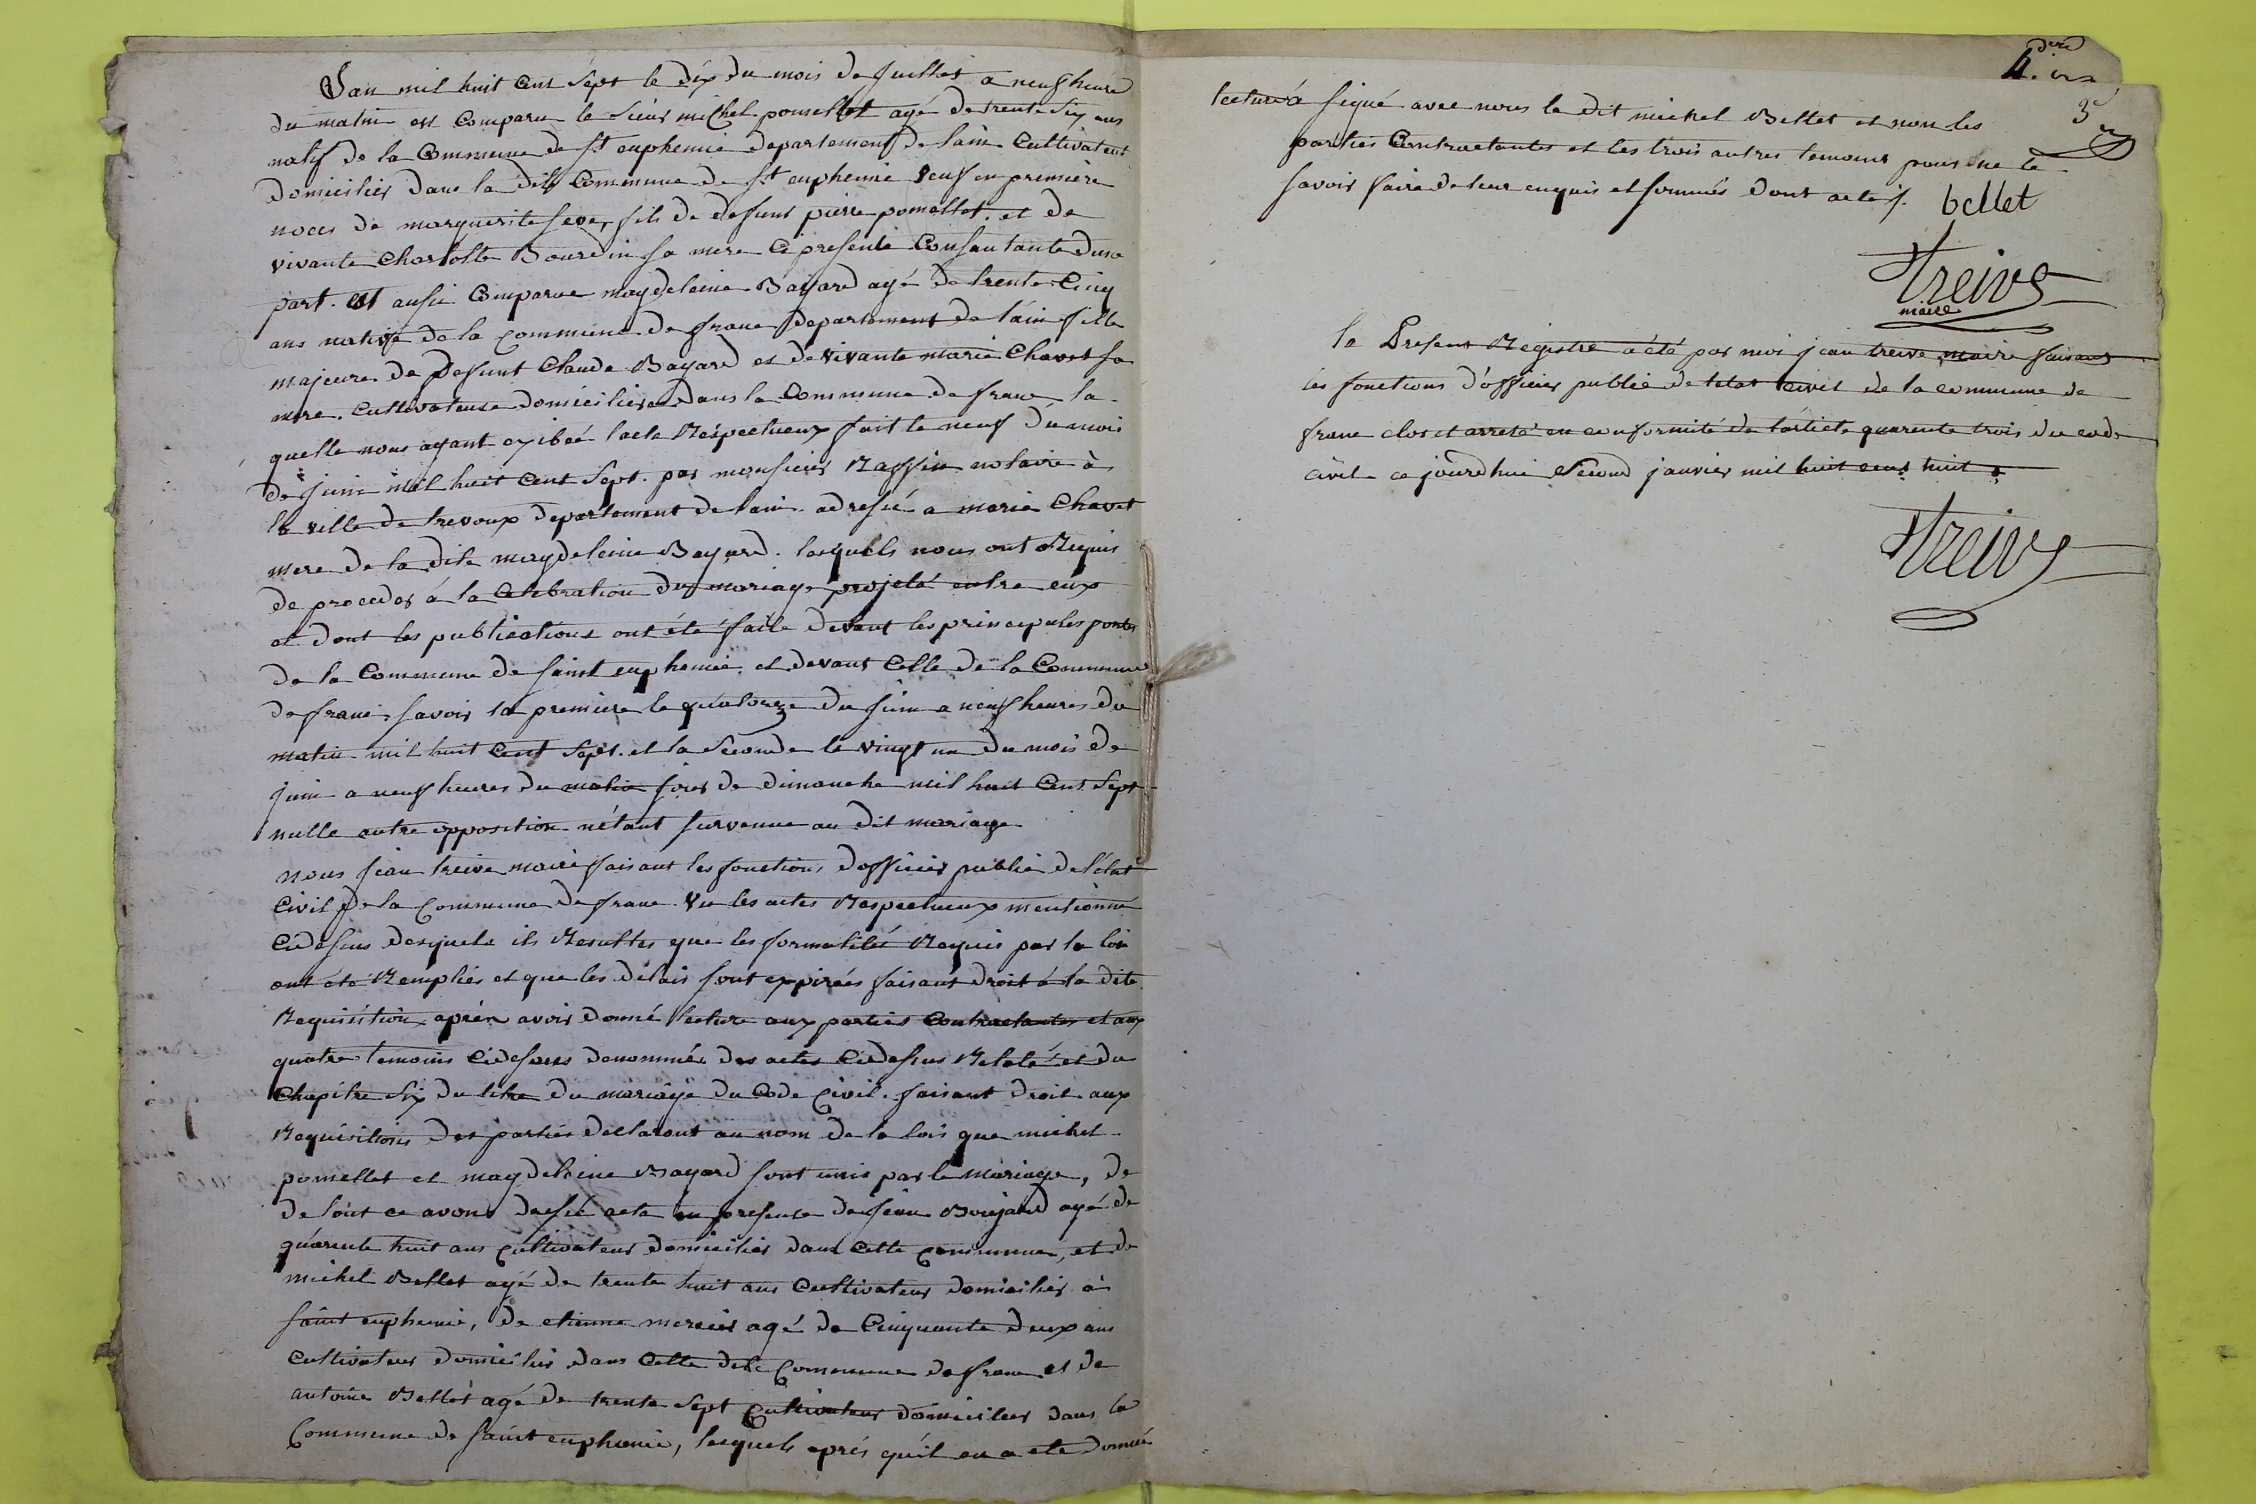 L'an mil huit Cent Sept le dix du mois de Juillet a neuf heure
du matin est Comparu le Sieur michel pomellet agé de trente Six ans
natif de la Commune de St euphemie departement de l'ain Cultivateur
domicilier dans la dite Commune de St euphemie veuf en première
noces de marguerite seve, fils de defunt pierre pomellet. et de
vivante Charlotte Bourdin sa mere Ci presente Consentante dune
part. est aussi Comparue magdeleine Bayard agé de trente Cinq
ans native de la Commune de frans departement de l'ain fille
majeure de defunt Claude Bayard et de vivante marie Chavet sa
mere. Cultivateuse domiciliée dans la Commune de frans la-
quelle nous ayant exibeé l'acte Respectueux fait le neuf du mois
de Juin mil huit Cent Sept. par monsieur Raffin notaire à
la ville de trevoux departement de lain. adressé a marie Chavet
mere de la dite magdeleine Bayard. lesquels nous ont Requis
de proceder à la Celebration du mariage projeté entre eux
et dont les publications ont été faite devant les principales portes
de la Commune de saint euphemie et devant Celle de la Commune
de frans. savoir la premiere le quatorze du Juin a neuf heures du
matin mil huit Cent Sept. et la Seconde le vingt un du mois de
Juin a neuf heures du matin jour de dimanche mil huit Cent Sept
nulle autre opposition nétant survenue au dit mariage
nous Jean treive maire faisant les fonctions dofficier public de l'état
Civil de la Commune de frans. Vu les actes Respectueux mentionné
Cidessus desquels ils Resultes que les formalités Requis par la loi
ont été Remplies et que les délais sont expirées faisant droit à la dite
Requisition aprèr avoir donné lecture aux parties Contractantes et aux
quatre temoins Cidessous denommés des actes Cidessus Relaté et du
Chapitre Six du titre du mariage du Code Civil. faisant droit aux
Requisitions des parties declarons au nom de la lois que michel
pomellet et magdeleine Bayard sont unis par le mariage, de
de tout ce avons dressé acte en presence de Jean Boujard agé de
quarente huit ans Cultivateur domicilier dans Cette Commune, et de
michel Bellet agé de trente huit ans Cultivateur domicilier à
saint euphemie, de etienne mercier agé de Cinquante deux ans
Cultivateur domicilier dans Cette dite Commune de frans et de
antoine Bellet agé de trente Sept Cultivateur domicilier dans la
Commune de saint euphemie, lesquels après qu'il en a ete donnée
4.
3e
lecture à signé avec nous le dit michel Bellet et non les
parties Contractantes et les trois autres temoins pour ne le
savoir faire de leur enquis et sommés dont acte /. bellet
treive
maire
le Present Registre a été par moi jean treive maire faisant
les fonctions d'officier public de l'etat civil de la commune de
frans clos et arreté en conformité de l'article quarente trois du code
civil ce jourdhui Second janvier mil huit cent huit
treive